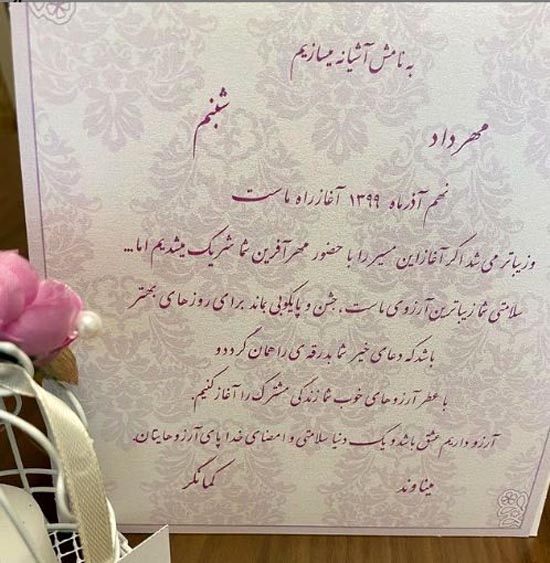 به نامش آشیانه میسازیم
مهرداد
شبنم
نهم آذر ماه ۱۳۹۹ آغاز راه ماست
و زیباتر می شد اگر آغاز این مسیر را با حضور مهرآفرین شما شریک میشدیم اما...
سلامتی شما زیباترین آرزوی ماست، جشن و پایکوبی بماند برای روزهای بهتر
باشد که دعای خیر شما بدرقه ی راهمان گردد و
با عطر آرزوهای خوب شما زندگی مشترک را آغاز کنیم.
آرزو داریم عشق باشد و یک دنیا سلامتی و امضای خدا پای آرزوهایتان.
میناوند
کمانگر